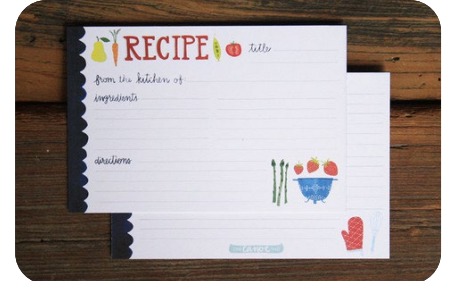 RECIPE title
from the kitchen of
ingredients
directions